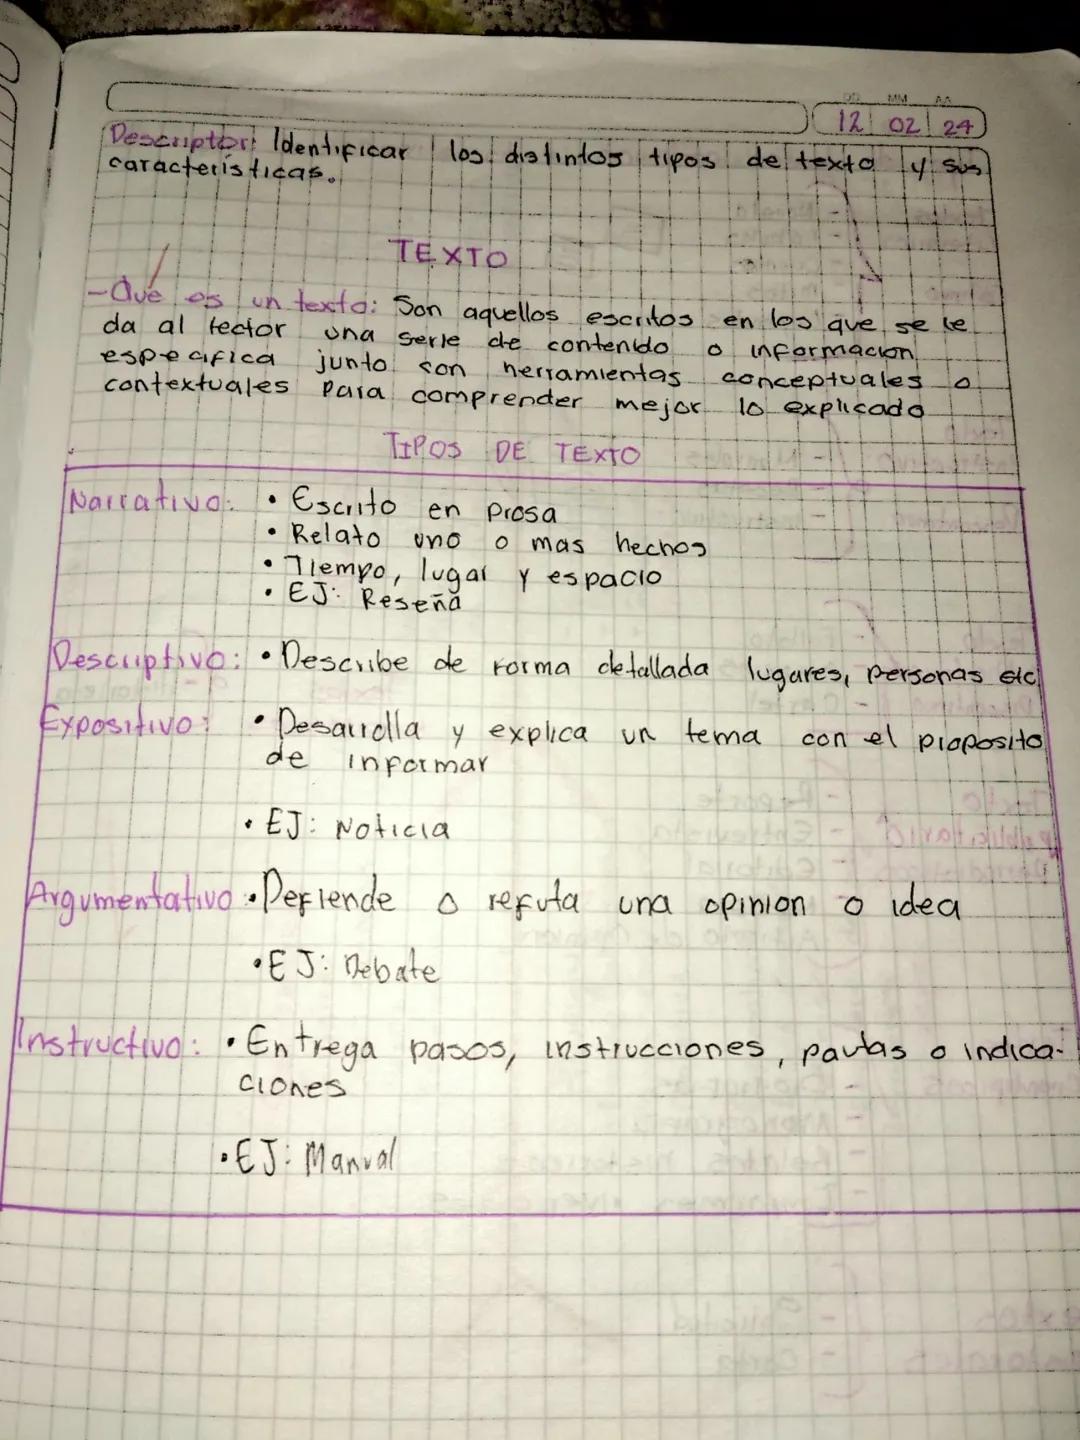 DD MM AA
12 02 24
Descriptor: Identificar los distintos tipos de texto y sus
características.
TEXTO
-Qué es un texto: Son aquellos escritos en los que se le
da al lector una serie de contenido o informacion
especifica junto son herramientas conceptuales o
contextuales para comprender mejor lo explicado
TIPOS DE TEXTO
Narrativo: • Escrito en prosa
• Relato uno o mas hechos
• Tiempo, lugar y espacio
• EJ: Reseña
Descriptivo: • Describe de forma detallada lugares, personas etc
Expositivo: • Desarrolla y explica un tema con el proposito
de informar
• EJ: Noticia
Argumentativo • Defiende o refuta una opinion o idea
• EJ: Debate
Instructivo: • Entrega pasos, instrucciones, pautas o indica-
ciones
• EJ: Manual